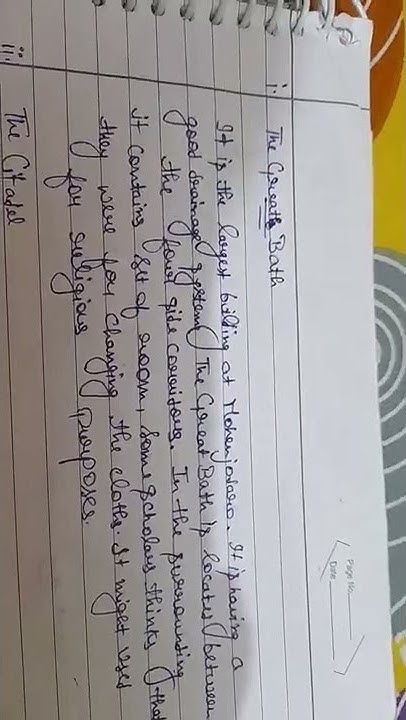 Page No.
Date
i. The Great Bath
It is the largest building at Mohenjodaro. It is having a
good drainage system. The Great Bath is located between
the four side corridors. In the surrounding
it contains set of room, some scholars thinks that
they were for changing the cloths. It might uses
for religious purposes.
ii. The Citadel